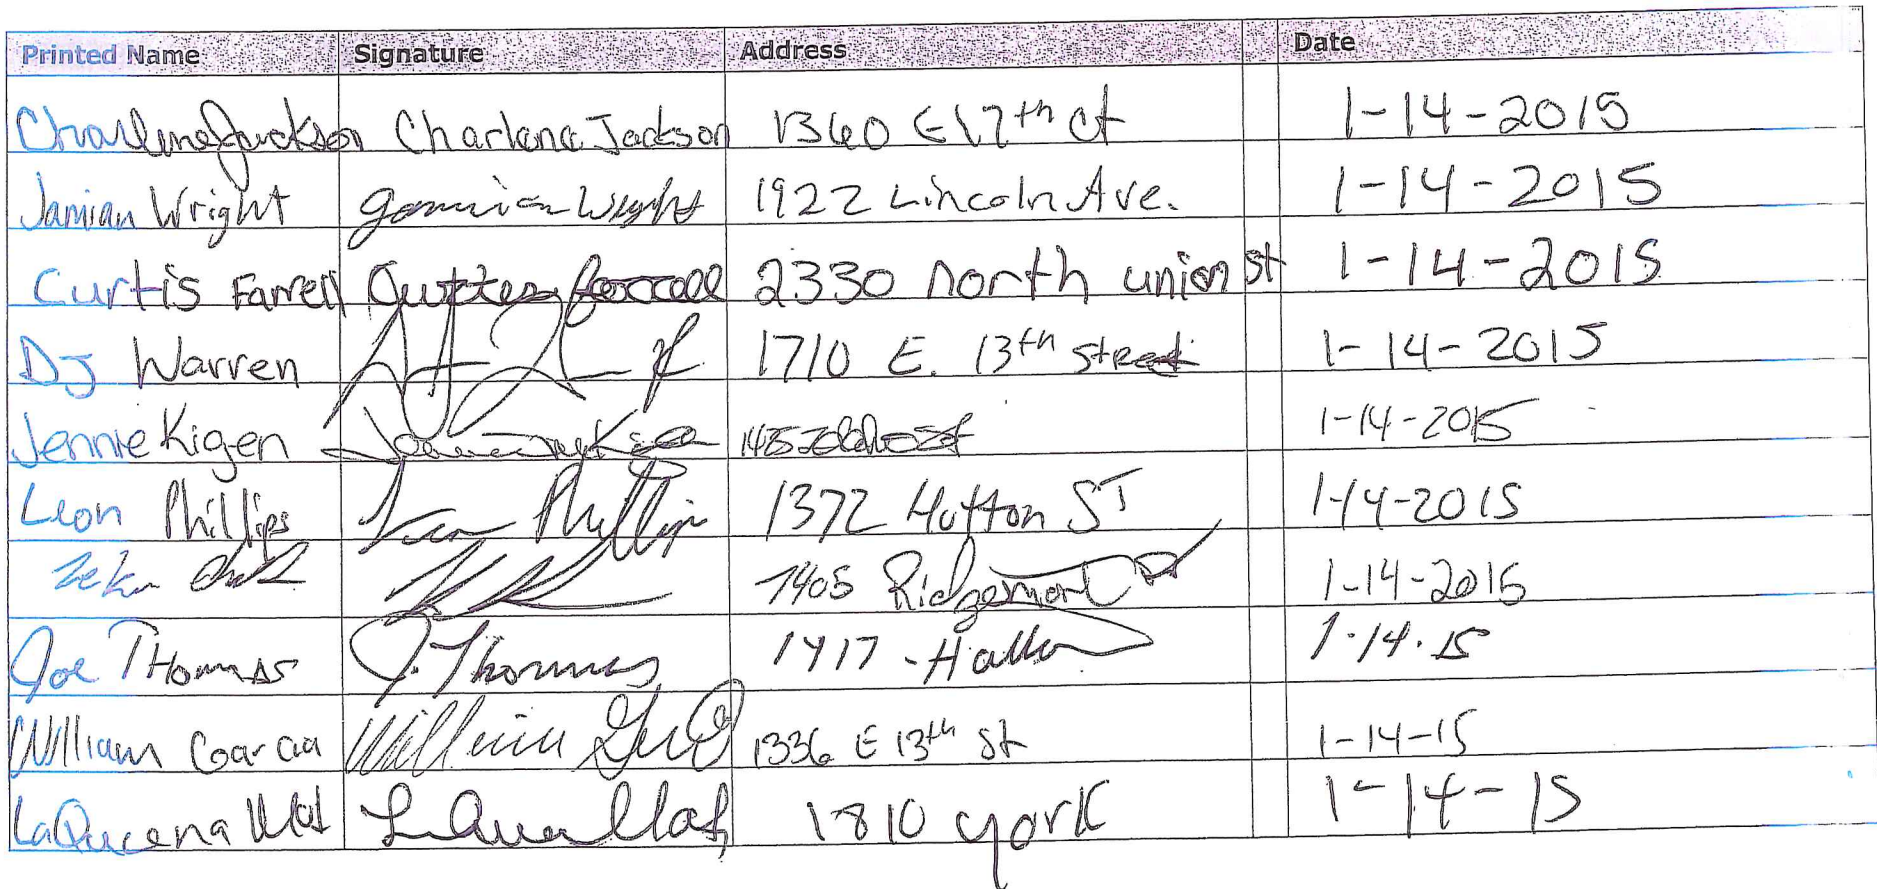 Printed Name Signature Address Date
Charlene Jackson Charlene Jackson 1360 E 17th Ct 1-14-2015
Jamian Wright Jamian Wright 1922 Lincoln Ave. 1-14-2015
Curtis Farrell 2330 north union st 1-14-2015
DJ Warren 1710 E. 13th street 1-14-2015
Jennie Kigen 1-14-2015
Leon Phillips Leon Phillips 1372 Hutton ST 1-14-2015
7405 Ridgemont 1-14-2015
Joe THomas J. Thomas 1417 1-14-15
William Garcia William 1336 E 13th st 1-14-15
LaQueena 1810 york 1-14-15